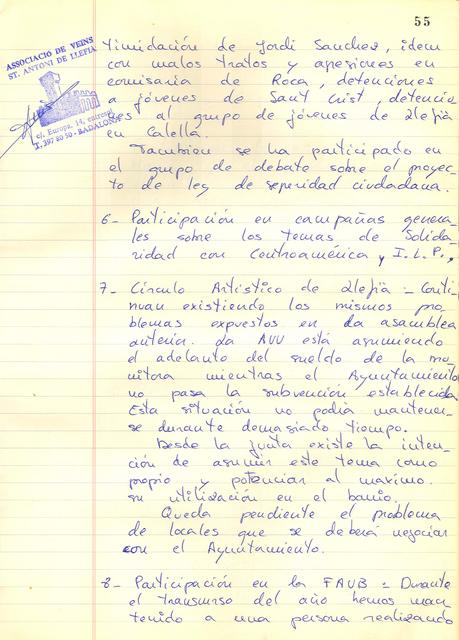 55
ASSOCIACIÓ DE VEINS
ST. ANTONI DE LLEFIÀ
c/. Europa, 14, entresol
T. 397 80 50 - BADALONA
timidación de Jordi Sanchez, idem
con malos tratos y agresiones en
comisaria de Roca, detenciones
a jóvenes de Sant Crist, detencio
nes al grupo de jóvenes de Llefia
en Calella.
Tambien se ha participado en
el grupo de debate sobre el proyec-
to de ley de seguridad ciudadana.
6- Participación en campañas genera-
les sobre los temas de Solida-
ridad con Centroamérica y I.L.P.,
7- Círculo Artistico de Llefia = Conti-
nuan existiendo los mismos pro-
blemas expuestos en la asamblea
anterior. La AVV está asumiendo
el adelanto del sueldo de la mo-
nitora mientras el Ayuntamiento
no pasa la subvención establecida
Esta situación no podia mantener-
se durante demasiado tiempo.
Desde la junta existe la inten-
ción de asumir este tema como
propio y potenciar al maximo.
su utilización en el barrio.
Queda pendiente el problema
de locales que se deberá negociar
con el Ayuntamiento.
8- Participación en la FAVB = Durante
el transcurso del año hemos man-
tenido a una persona realizando